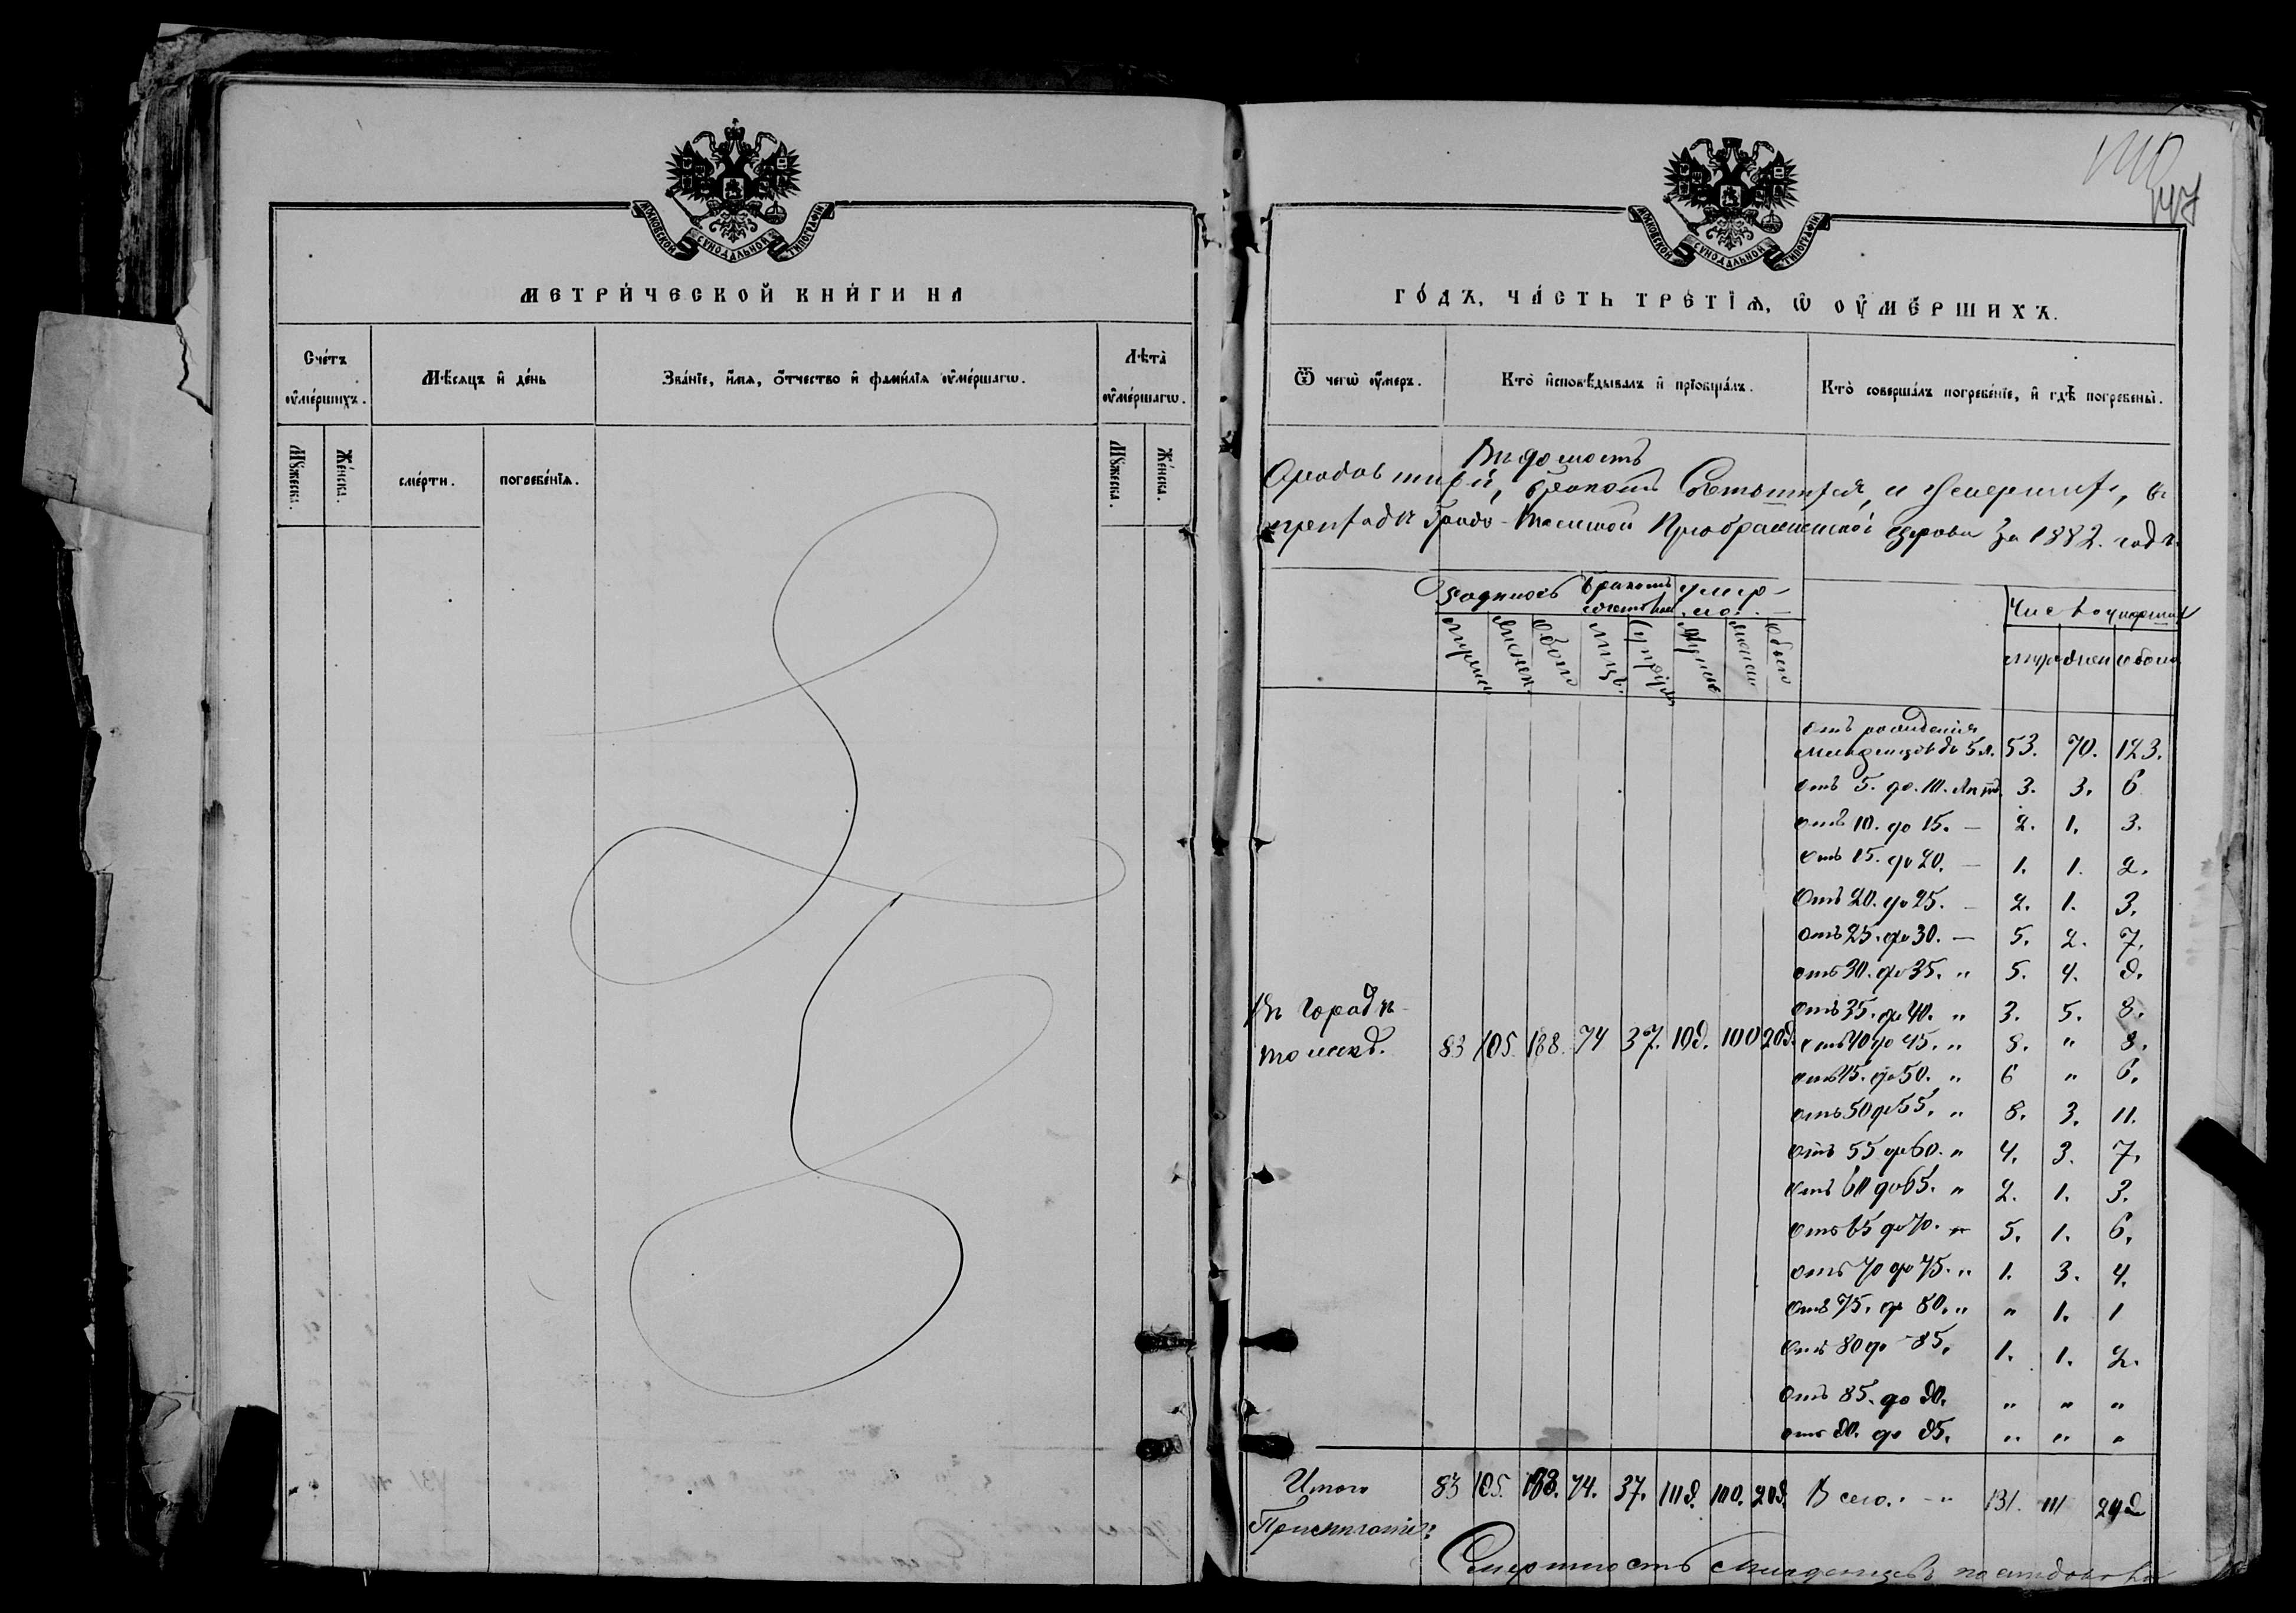 МОСКОВСКОЙ СУНОДАЛЬНОЙ ТИПОГРАФІИ
МЕТРИ́ЧЕСКОЙ КНИ́ГИ НА
Сче́тъ ᲂу҆ме́ршихъ.
Мѣ́сяцъ и҆ де́нь
Зва́нїе, и҆́мя, ѻ҆́тчество и҆ фами́лїя ᲂу҆ме́ршагѡ.
Лѣта̀ ᲂу҆ме́ршагѡ.
Мꙋ́жеска.
Же́нска.
сме́рти.
погребе́нїѧ.
Мꙋ́жеска.
Же́нска.
МОСКОВСКОЙ СУНОДАЛЬНОЙ ТИПОГРАФІИ
147
ГО́ДЪ, ЧА́СТЬ ТРЕ́ТЇѦ, Ѡ҆ ОУ҆МЕ́РШИХЪ.
Ѿ чегѡ̀ ᲂу҆́меръ.
Кто̀ и҆сповѣ́дывалъ и҆ прїѻбща́лъ.
Кто̀ соверша́лъ погребе́нїе, и҆ гдѣ̀ погребены̀.
Вѣдомость
О родившихся, бракомъ Сочетавшихся, и Умершихъ, въ
приходѣ Градо-Томской Преображенской церкви За 1882. годъ.
Родилось
бракомъ
умер-
ло.
Число умершихъ
мужеска
женск.
обоего
лицъ.
женска
Обоего
муж
жен
обоего
отъ рожденія
младенцовъ до 5 л. 53. 70. 123.
отъ 5. до. 10. лѣтъ. 3. 3. 6
отъ 10. до 15. — 2. 1. 3.
отъ 15. до 20. — 1. 1. 2.
Отъ 20. до 25. — 2. 1. 3.
отъ 25. до 30. — 5. 2. 7.
отъ 30. до 35. „ 5. 4. 9.
отъ 35. до 40. „ 3. 5. 8.
Въ Городѣ
Томскѣ. 83 105. 188. 74 37. 109. 100 209. отъ 40 до 45. „ 8. „ 8.
отъ 45. до 50. „ 6 „ 6.
отъ 50 до 55. „ 8. 3. 11.
отъ 55 до 60. „ 4. 3. 7.
отъ 60 до 65. „ 2. 1. 3.
отъ 65 до 70. „ 5. 1. 6.
отъ 70 до 75. „ 1. 3. 4.
отъ 75. до 80. „ „ 1. 1
отъ 80 до 85. 1. 1. 2.
отъ 85. до 90. „ „ „
отъ 90. до 95. „ „ „
Итого 83 105. 188. 74. 37. 109. 100. 209. Всего. „ 131. 111
Примѣчаніе:
Смертность младенцевъ